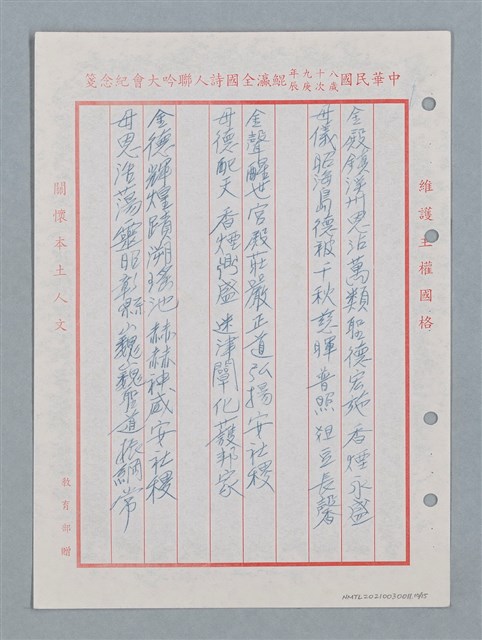 中華民國八十九年歲次庚辰鯤瀛全國詩人聯吟大會紀念箋
維護主權國格
金殿鎮溪州恩沾萬類聖德宏施香煙永盛
母儀昭海島德被千秋慈暉普照俎豆長馨
金聲醒世宮殿莊嚴正道弘揚安社稷
母德配天香煙盛迷津闡化護邦家
金德輝煌蹟溯瑤池赫赫神威安社稷
母恩浩蕩靈昭彰縣巍巍聖道振綱常
關懷本土人文
教育部贈
NMTL20210030081.10/15